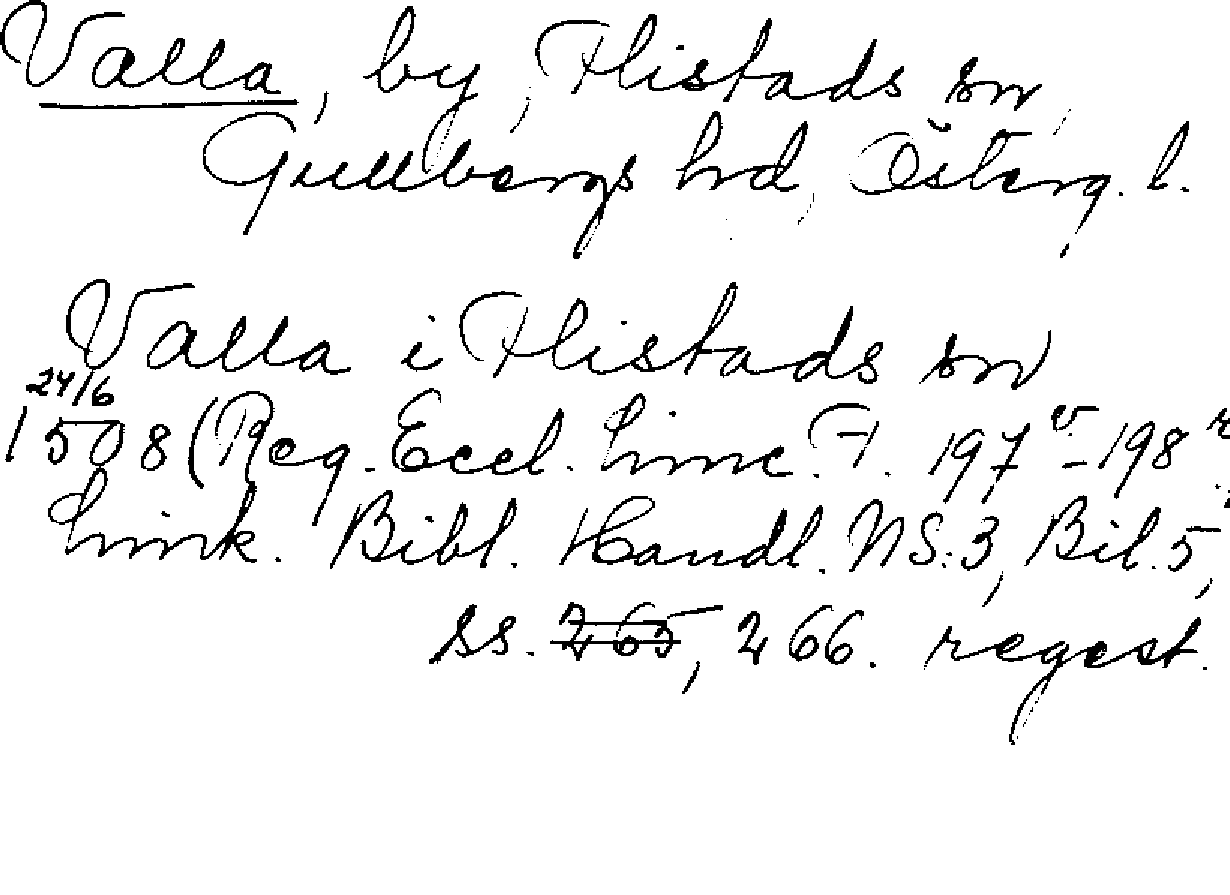 Valla, by, Flistads sn,
Gullbergs hrd, Österg. l.
Valla i Flistads sn
24/6
1508 (Reg. Eccl. Linc. F. 197v - 198r
Link. Bibl. Handl. NS:3, Bil. 5,
ss. 265, 266. regest.